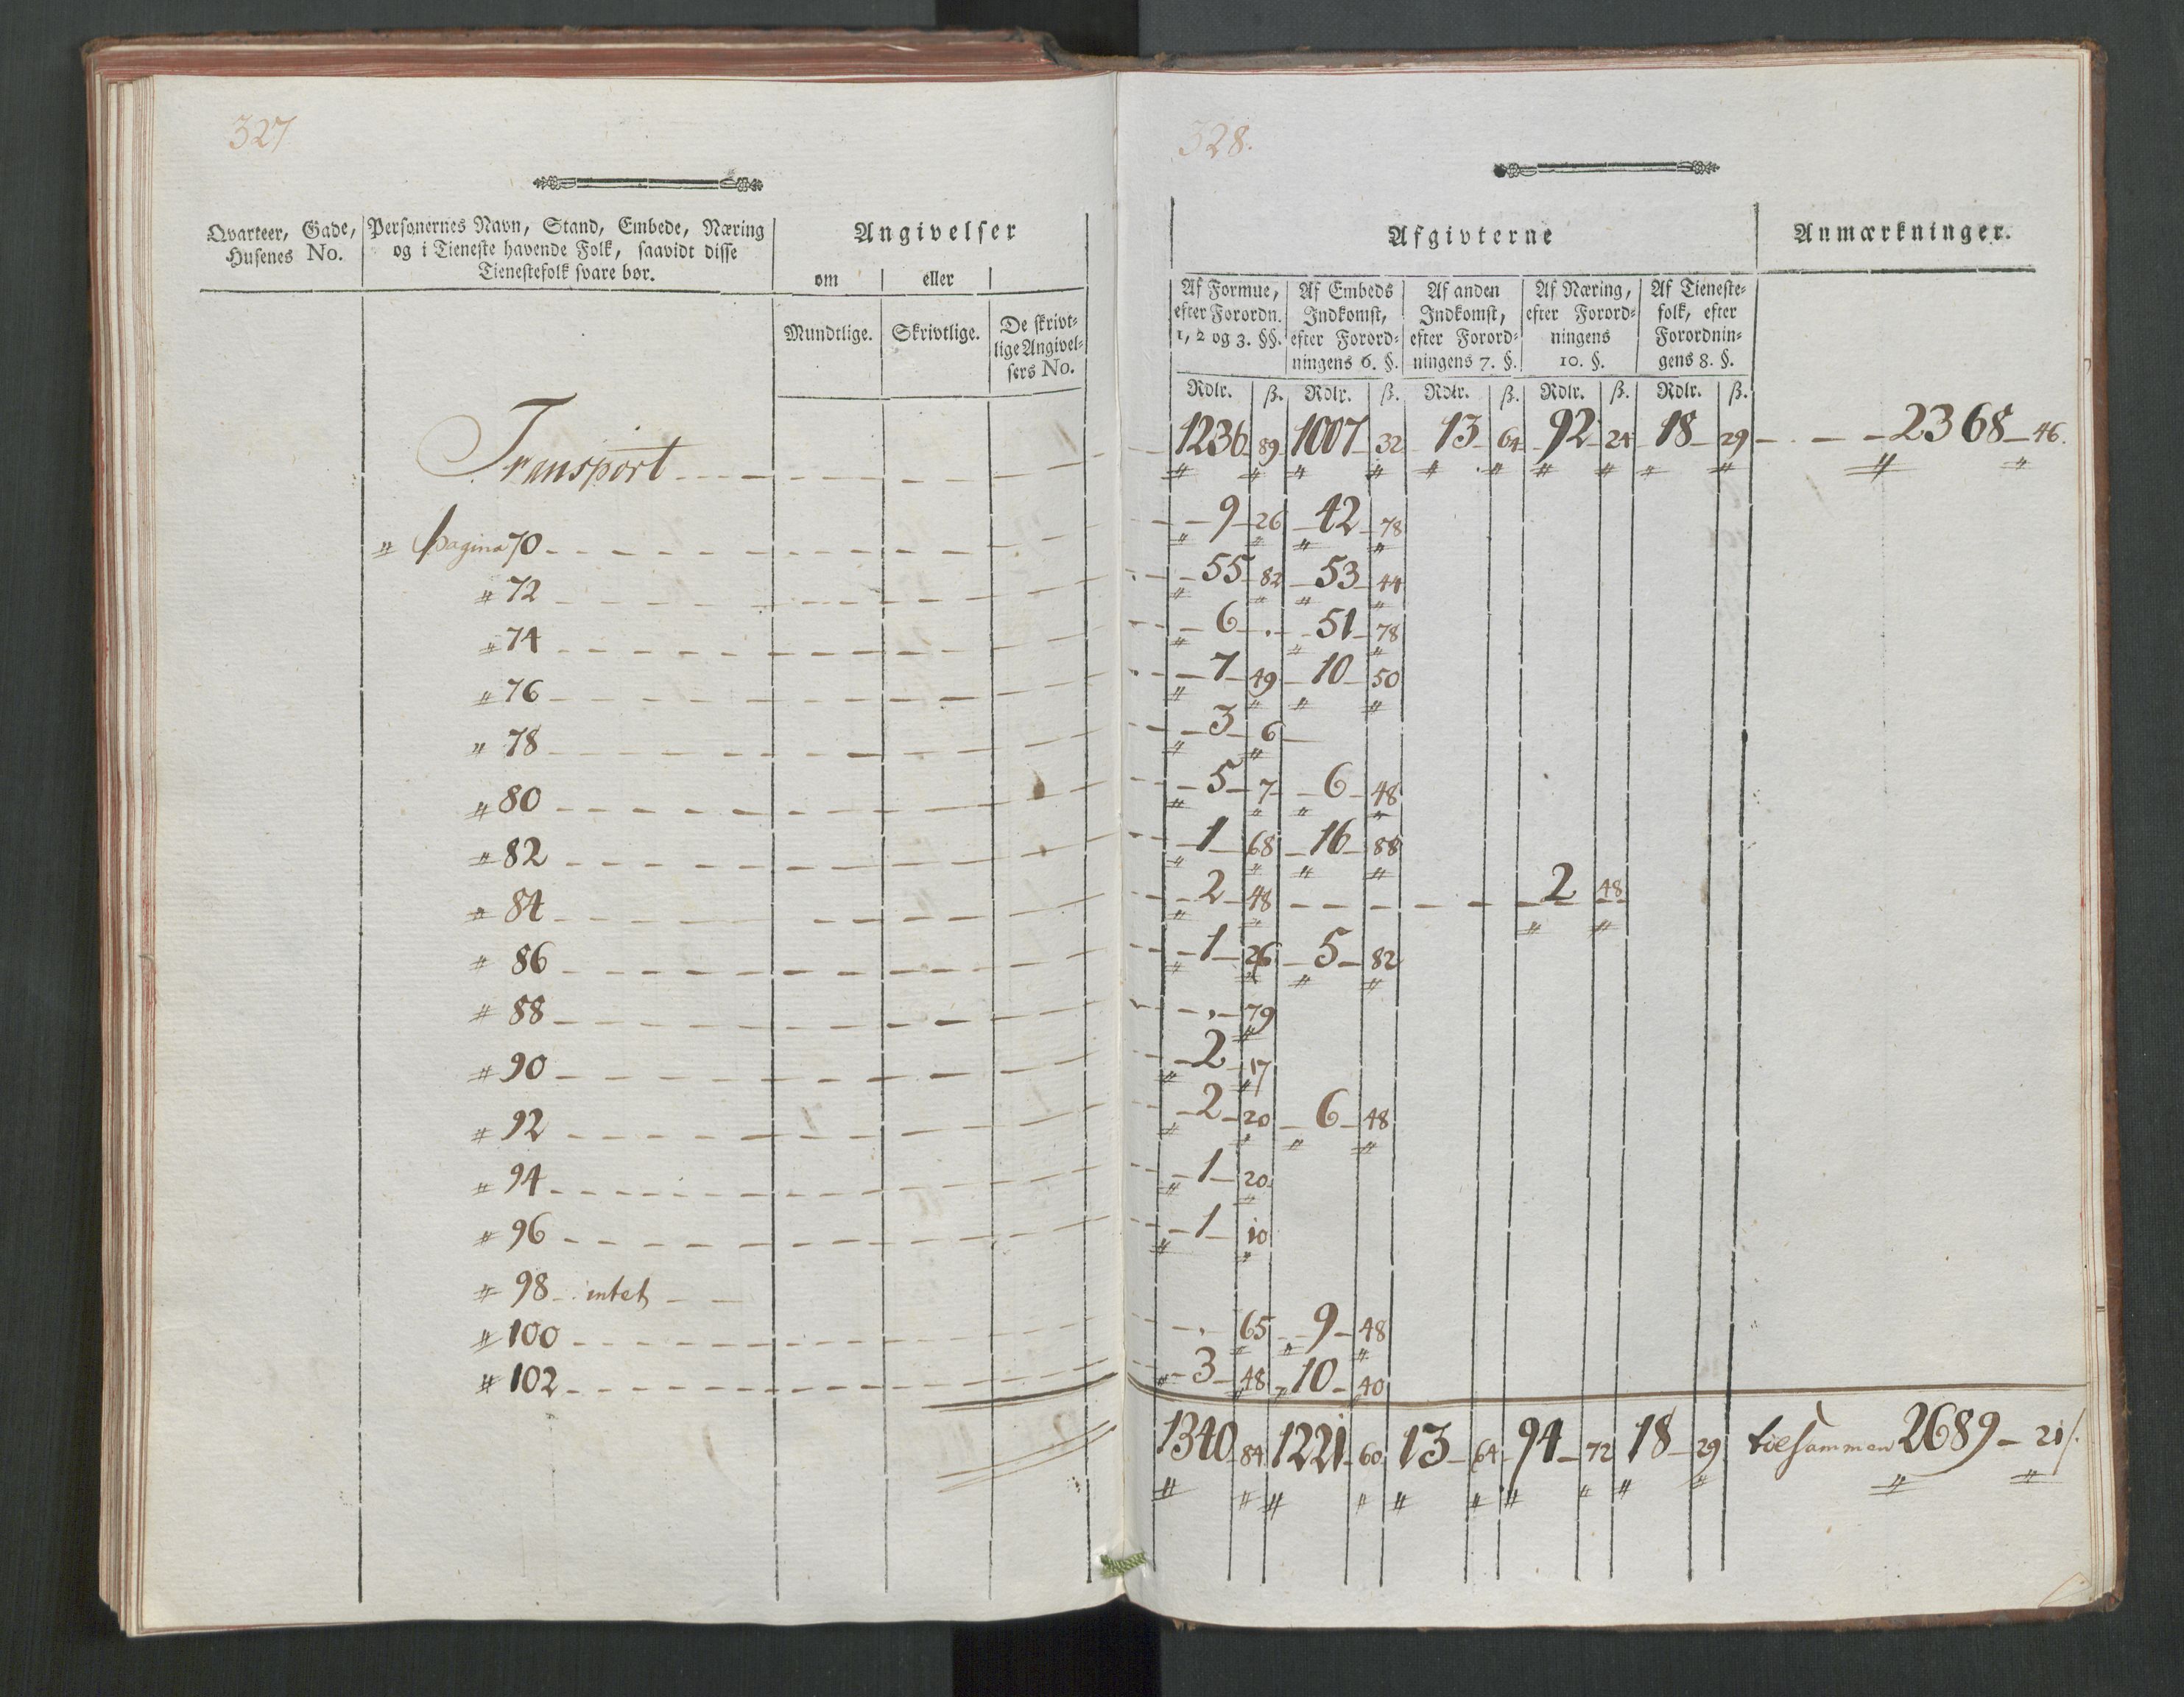 327
Qvarteer, Gade, Husenes No.
Personernes Navn, Stand, Embede, Næring og i Tieneste havende Folk, saavidt disse Tienestefolk svare bør.
Angivelser
om | eller
Mundtlige. | Skrivtlige. | De skrivtlige Angivelsers No.
Transport
" pagina 70
" 72
" 74
" 76
" 78
" 80
" 82
" 84
" 86
" 88
" 90
" 92
" 94
" 96
" 98 intet
" 100
" 102
328.
Afgivterne
Anmærkninger.
Af Formue, efter Forordn. 1, 2 og 3. §§. | Af Embeds Indkomst, efter Forordningens 6. §. | Af anden Indkomst, efter Forordningens 7. §. | Af Næring, efter Forordningens 10. §. | Af Tienestefolk, efter Forordningens 8. §.
Rdlr. | ß. | Rdlr. | ß. | Rdlr. | ß. | Rdlr. | ß. | Rdlr. | ß.
1236 89 1007 32 13 64 92 24 18 29 2368 46.
9 26 42 78
55 82 53 44
6 . 51 78
7 49 10 50
3 6
5 7 6 48
1 68 16 88
2 48 2 48
1 26 5 82
. 79
2 17
2 20 6 48
1 20
1 10
. 65 9 48
3 48 10 40
1340 84 1221 60 13 64 94 72 18 29 tilsammen 2689 21